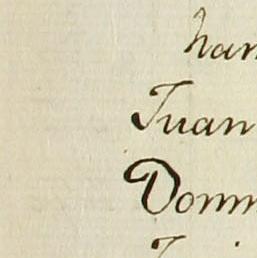 han
Juan
Domm